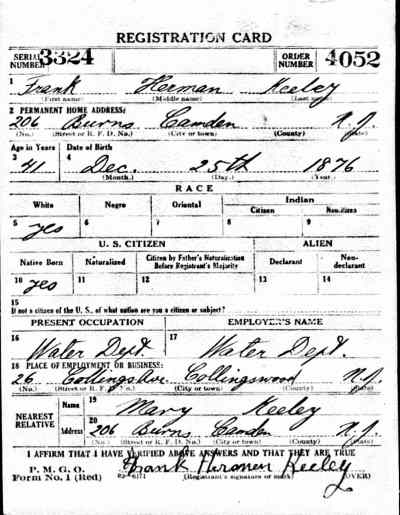 REGISTRATION CARD
SERIAL NUMBER 3324 ORDER NUMBER 4052
1 Frank Herman Keeley
(First name) (Middle name) (Last name)
2 PERMANENT HOME ADDRESS:
206 Burns Camden N.J.
(No.) (Street or R. F. D. No.) (City or town) (County) (State)
Age in Years Date of Birth
3 41 4 Dec. 25th 1876
(Month.) (Day.) (Year.)
RACE
White Negro Oriental Indian
Citizen Noncitizen
5 yes 6 7 8 9
U. S. CITIZEN ALIEN
Native Born Naturalized Citizen by Father's Naturalization Before Registrant's Majority Declarant Non-declarant
10 yes 11 12 13 14
15
If not a citizen of the U. S., of what nation are you a citizen or subject?
PRESENT OCCUPATION EMPLOYER'S NAME
16 Water Dept. 17 Water Dept.
18 PLACE OF EMPLOYMENT OR BUSINESS:
26 Collings Ave. Collingswood N.J.
(No.) (Street or R. F. D. No.) (City or town) (County) (State)
NEAREST RELATIVE Name 19 Mary Keeley
Address 20 206 Burns Camden N.J.
(No.) (Street or R. F. D. No.) (City or town) (County) (State)
I AFFIRM THAT I HAVE VERIFIED ABOVE ANSWERS AND THAT THEY ARE TRUE
P. M. G. O.
Form No. 1 (Red) Frank Herman Keeley
(Registrant's signature or mark) (OVER)